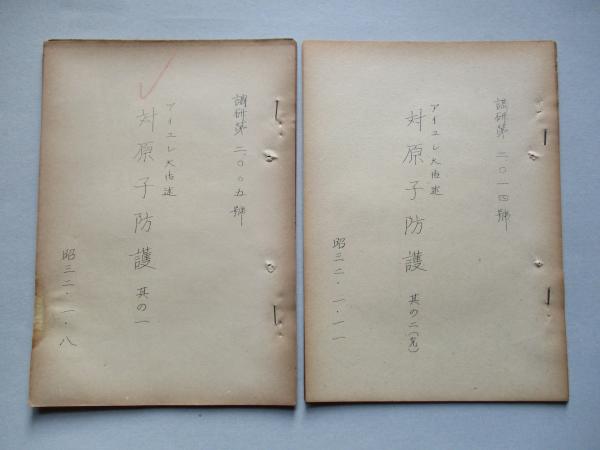 調研第二、〇〇九號
アイユレ大佐述
対原子防護 其の一
昭三二・一・八
調研第二、〇一四號
アイユレ大佐述
対原子防護 其の二(完)
昭三二・一・一一